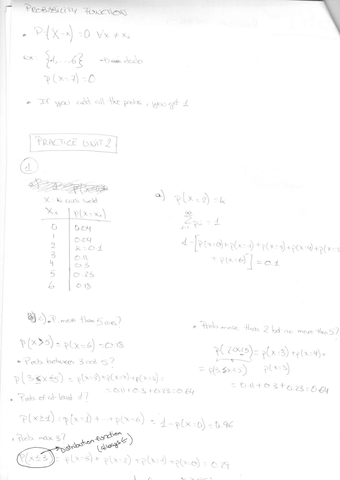 PROBABILITY FUNCTION
• P(X=x)=0 ∀x≠xi
ex: {1,...6} dado
P(x=7)=0
• If you add all the probs, you get 1
PRACTICE UNIT 2
1
xi P(x=xi)
0 0.04
1 0.04
2 k=0.1
3 0.11
4 0.3
5 0.23
6 0.18
a) P(x=2)=k
Σ pi = 1
+ P(x=6)] = 0.1
c) P. more than 5 ones?
P(x>5)=P(x=6)=0.18
• Prob between 3 and 5?
P(3≤x≤5)=P(x=3)+P(x=4)+P(x=5)=
=0.11+0.3+0.23=0.64
• Prob of at least 1?
P(x≥1)=P(x=1)+...+P(x=6)=1-P(x=0)=0.96
• Prob max 3?
Distribution function
(always ≤)
P(x≤3)=P(x=3)+P(x=2)+P(x=1)+P(x=0)=0.29
• Prob more than 2 but no more than 5?
P(2<x≤5)=P(x=3)+P(x=4)+
=P(3≤x≤5) P(x=5)
=0.11+0.3+0.23=0.64